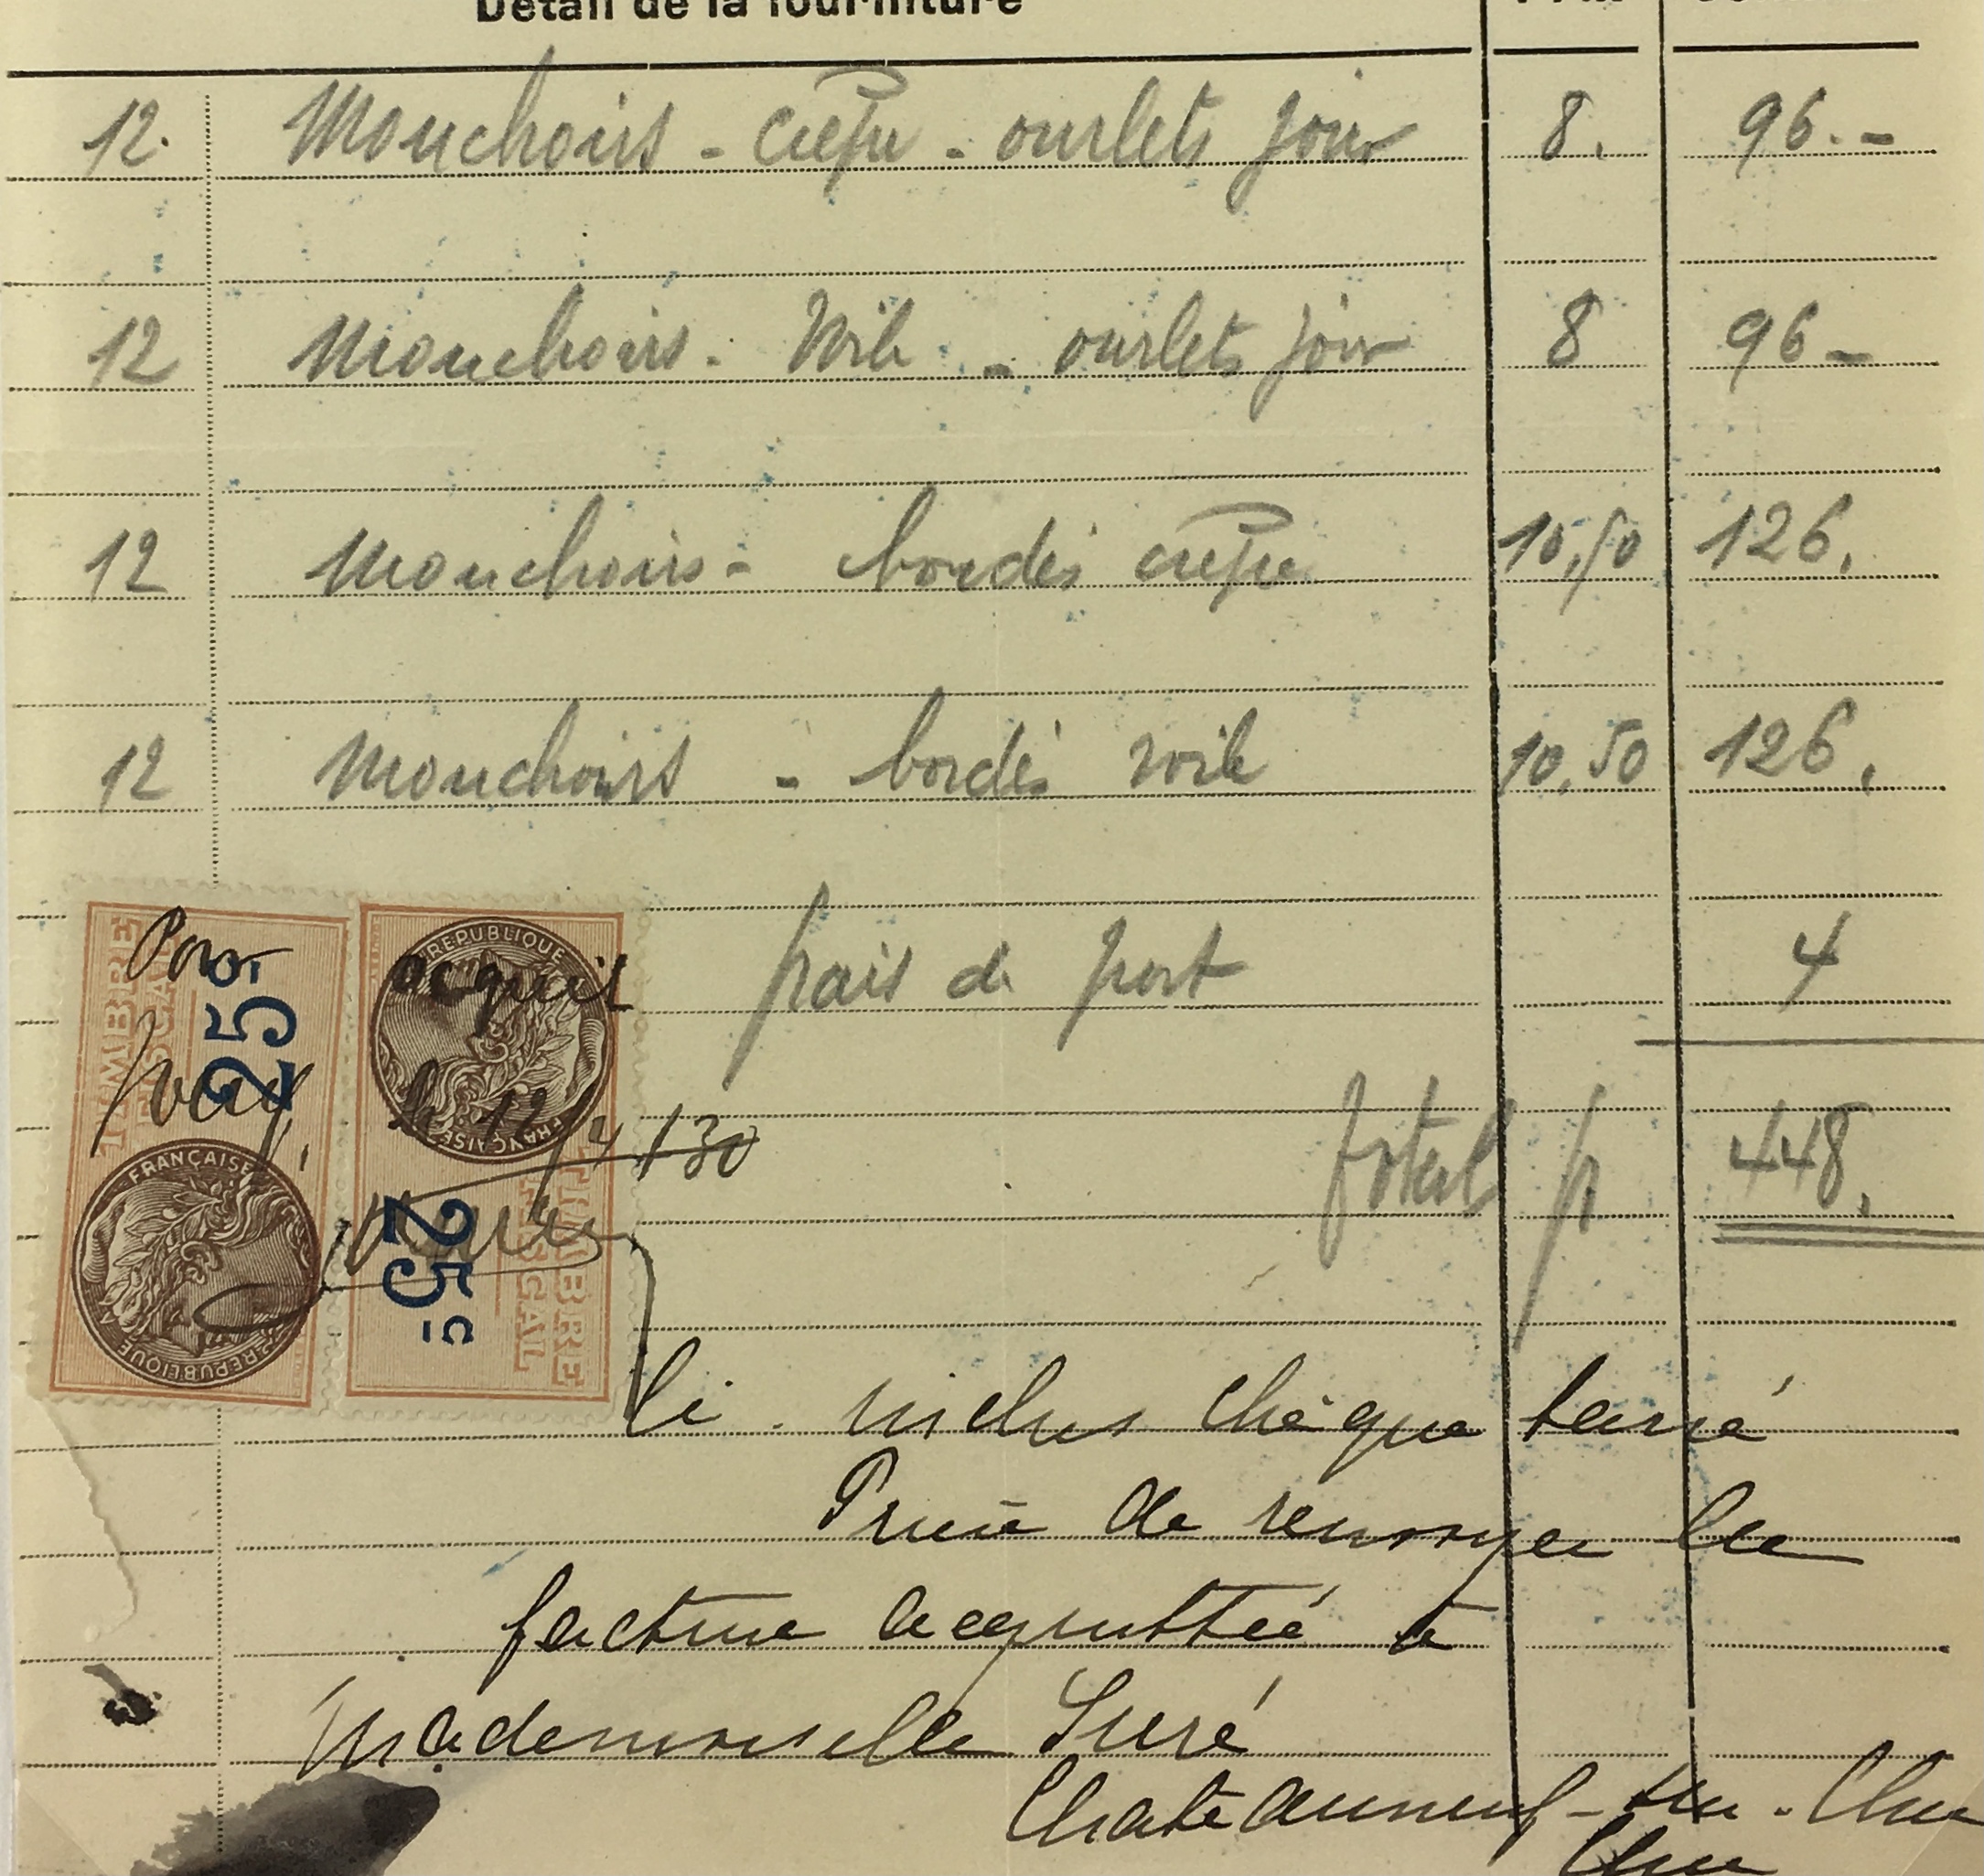 Détail de la fourniture
12. Mouchoirs - crêpe - ourlets jour 8. 96.-
12 Mouchoirs. Voile - ourlets jour 8 96-
12 Mouchoirs - bordés crêpe 10,50 126.
12 Mouchoirs - bordés voile 10,50 126.
frais de port 4
total fr 448.
Pour acquit
le 12/4/30
TIMBRE FISCAL
25c
RÉPUBLIQUE FRANÇAISE
TIMBRE FISCAL
25c
RÉPUBLIQUE FRANÇAISE
Ci-inclus chèque barré
Prière de renvoyer la
facture acquittée à
Mademoiselle Suré
Chateauneuf-sur-Cher
Cher